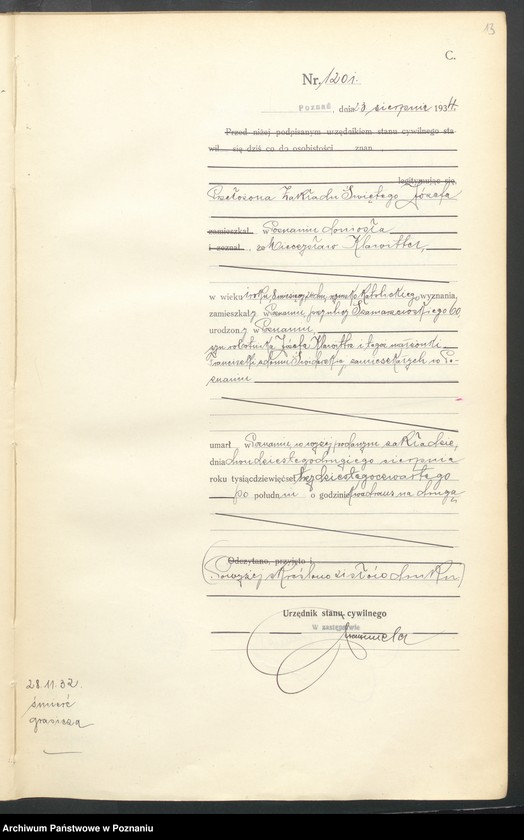 13
C.
Nr. 1201.
Poznań, dnia 23 sierpnia 1934.
Przed niżej podpisanym urzędnikiem stanu cywilnego sta
wił się dziś co do osobistości znan
legitymując się,
Przełożona Zakładu Świętego Józefa
zamieszkał w Poznaniu doniosła
i zeznał, że Mieczysław Klawitter,
w wieku rzymsko katolickiego wyznania,
zamieszkały w Poznaniu, przy ulicy Szamarzewskiego 60
urodzony w Poznaniu
syn robotnika Józefa Klawittra i tegoż małżonki
Franciszki z domu zamieszkałych w Po-
znaniu
umarł w Poznaniu, w wyżej podanym zakładzie,
dnia dwudziestegodrugiego sierpnia
roku tysiącdziewięćset trzydziestegoczwartego
po południu o godzinie kwadrans na drugą
Odczytano, przyjęto i
Powyżej skreślono słów druku
Urzędnik stanu cywilnego
W zastępstwie
28.11.32
śmierć
gruźlica
Archiwum Państwowe w Poznaniu